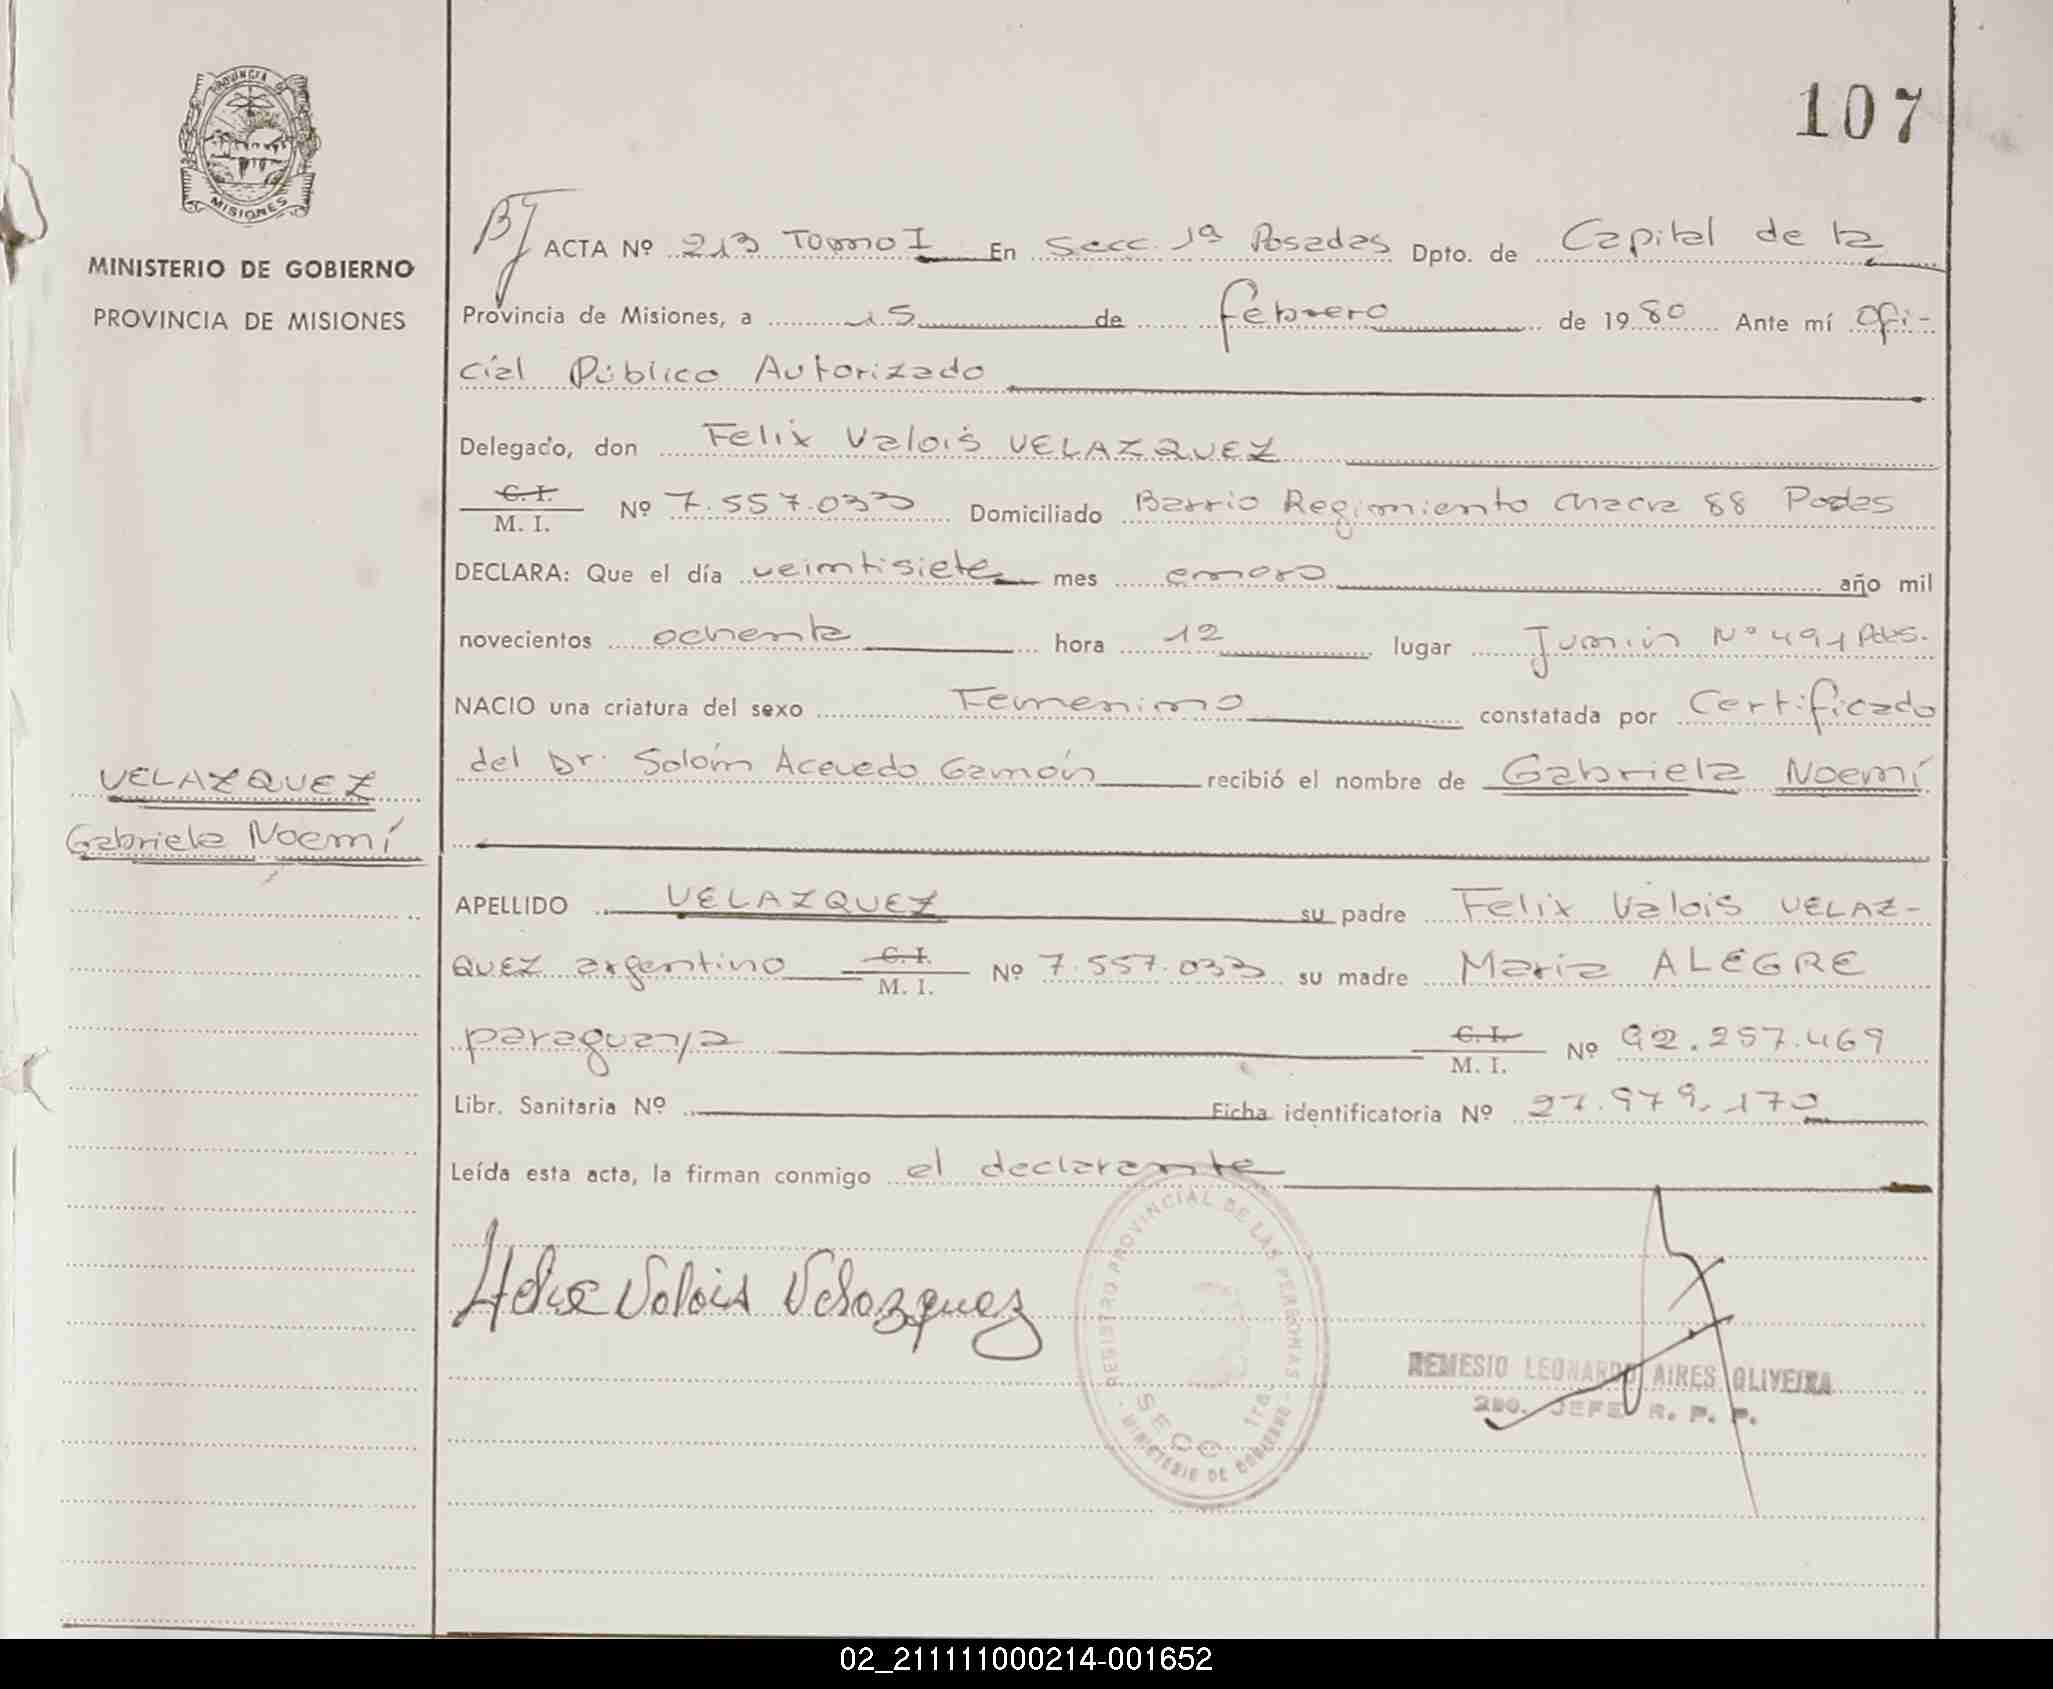 107
PROVINCIA DE
MISIONES
MINISTERIO DE GOBIERNO
PROVINCIA DE MISIONES
VELAZQUEZ
Gabriela Noemí
ACTA Nº 213 Tomo I En Secc. 1ª Posadas Dpto. de Capital de la
Provincia de Misiones, a 15 de febrero de 1980 Ante mí Ofi-
cial Público Autorizado
Delegado, don Felix Valois VELAZQUEZ
C. I.
M. I. Nº 7.557.033 Domiciliado Barrio Regimiento Chacra 88 Posdas
DECLARA: Que el día veintisiete mes enero año mil
novecientos ochenta hora 12 lugar Junin Nº 491 Pdas.
NACIO una criatura del sexo Femenino constatada por Certificado
del Dr. Solóm Acevedo Gamón recibió el nombre de Gabriela Noemí
APELLIDO VELAZQUEZ su padre Felix Valois VELAZ-
QUEZ argentino C. I. M. I. Nº 7.557.033 su madre Maria ALEGRE
paraguaya C. I. M. I. Nº 92.257.469
Libr. Sanitaria Nº Ficha identificatoria Nº 27.979.170
Leída esta acta, la firman conmigo el declarante
Felix Valois Velazquez
REGISTRO PROVINCIAL DE LAS PERSONAS
SECC 1ra
MINISTERIO DE GOBIERNO
REMESIO LEONARDO AIRES OLIVEIRA
2DO. JEFE R. P. P.
02_211111000214-001652